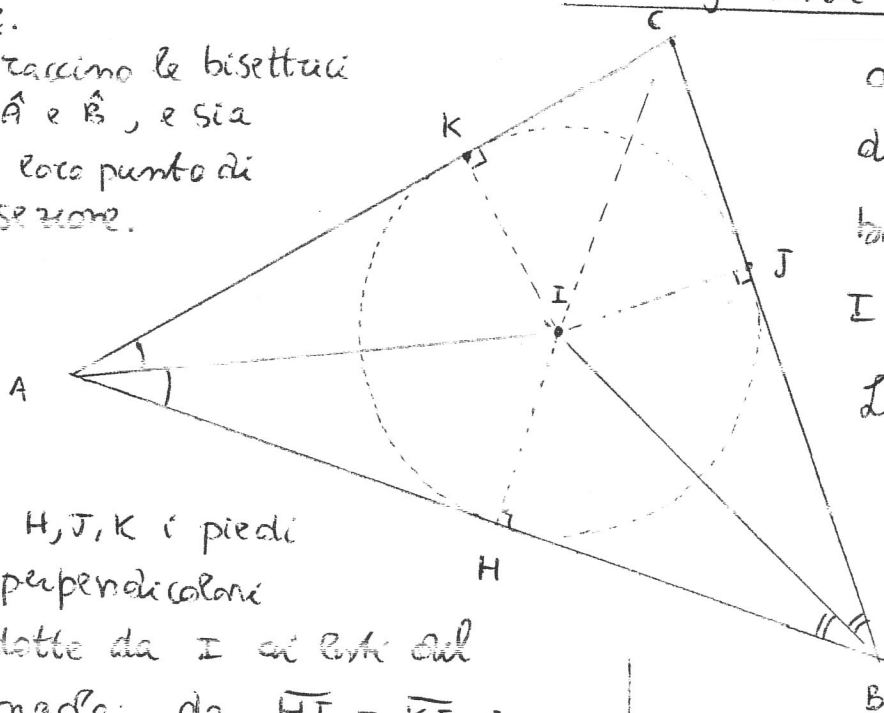 e.
raccino le bisettrici
Â e B̂, e sia
loro punto di
sezione.
C
K
J
I
A
H
B
H, J, K i piedi
perpendicolari
dotte da I ai lati del
da HI = KI
d
I